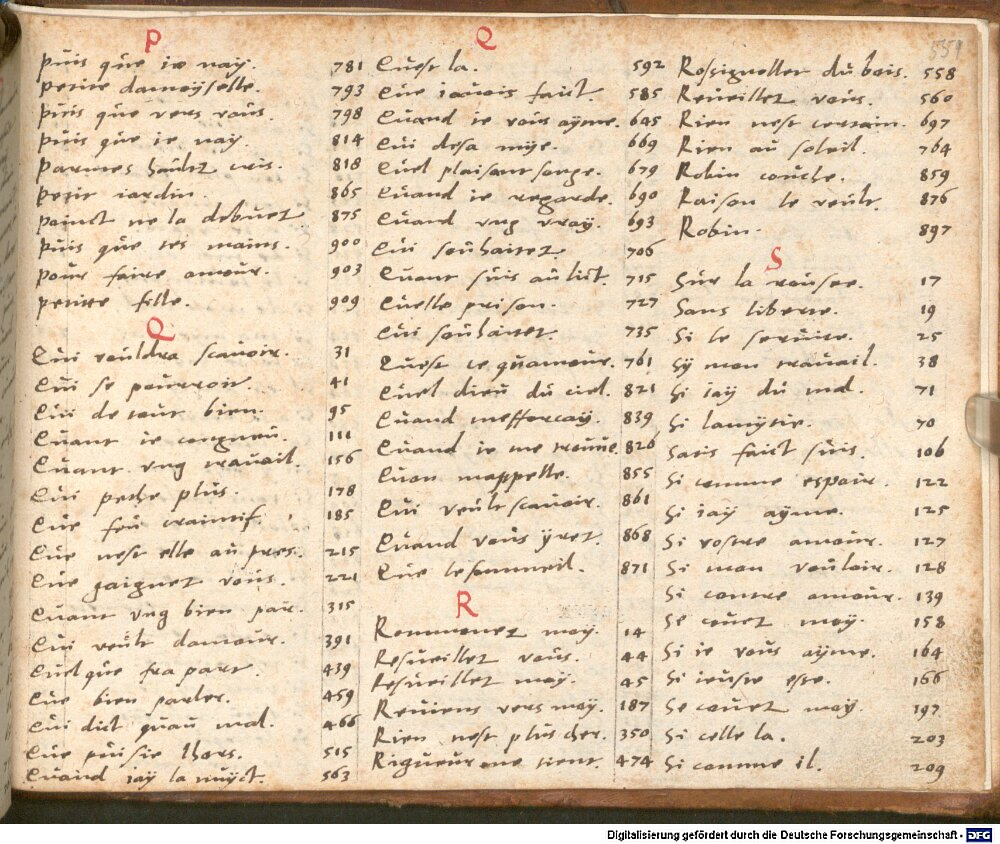 P
Puis que ie nay. 781
Petite damoyselle. 793
Puis que vers vous. 798
Puis que ie nay. 814
Parmes haultz cris. 818
Petit iardin. 865
Painct ne la debuez 875
Puis que tes mains. 900
Pour faire amour. 903
Petite fille. 909
Q
Qui vouldra scavoir. 31
Qui se pourroit. 41
Qui de tout bien. 95
Quant ie congneu. 111
Quant ung travail. 156
Qui peche plus. 178
Que feu craintif. 185
Que nest elle au pres. 215
Que gaignez vous. 221
Quant ung bien par. 315
Qui veult damour. 391
Quelque fra part. 439
Que bien parler. 459
Qui dict quau mal. 466
Que puisie thors. 515
Quand iay la nuyct. 563
Q
Quest la. 592
Que iavois faict. 585
Quand ie vous ayme. 645
Qui desa mye. 669
Quel plaisant songe. 679
Quand ie regarde. 690
Quand ung vray. 693
Qui souhaitez 706
Quant suis au lict. 715
Quelle prison. 727
Qui souhaitez. 735
Quest ce quamour. 761
Quel dieu du ciel. 821
Quand mefforcay. 839
Quand ie me trouve. 826
Quon mappelle. 855
Qui veult scavoir. 861
Quand vous yrez. 868
Que lesommeil. 871
R
Remmenez moy. 14
Resueillez vous. 44
Resueillez moy. 45
Reviens vers moy. 187
Rien nest plus cher. 350
Rigueur me tient. 474
551
Rossignollet du bois. 558
Reveillez vous. 560
Rien nest certain. 697
Rien au soleil. 764
Robin couche. 859
Raison le veult. 876
Robin. 897
S
Sur la rousee. 17
Sans liberte. 19
Si le service. 25
Sy mon travail. 38
Si iay du mal. 71
Si lamytie. 70
Saris faict suis. 106
Si comme espoir. 122
Si iay ayme. 125
Si vostre amour. 127
Si mon vouloir. 128
Si contre amour. 139
Se couet moy. 158
Si ie vous ayme. 164
Si ieusse este. 166
Se couet moy. 197
Si celle la. 203
Si comme il. 209
Digitalisierung gefördert durch die Deutsche Forschungsgemeinschaft - DFG